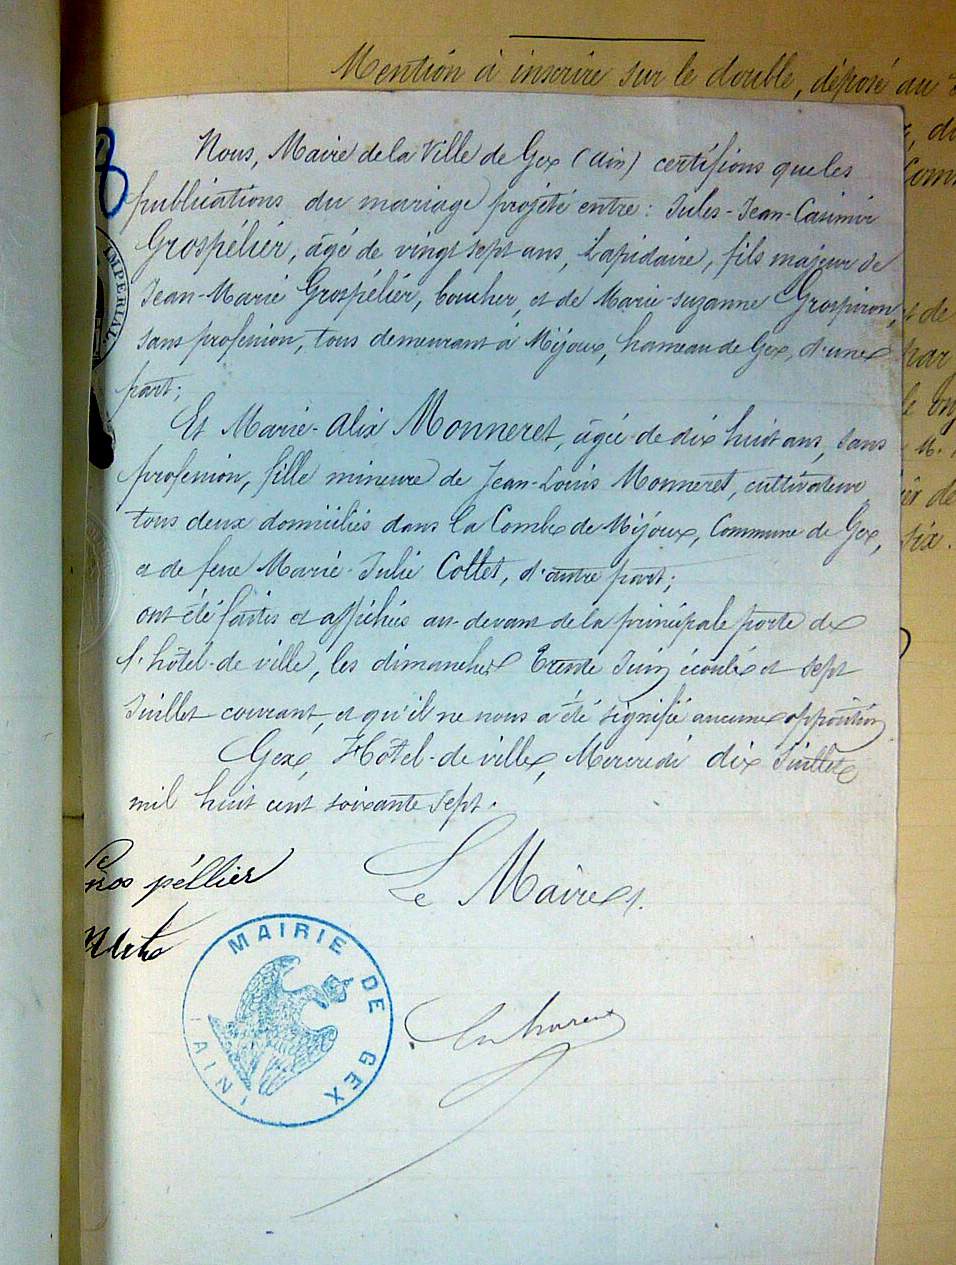 Mention à inscrire sur le double, déposé au
8
IMPERIAL.
Nous, Maire de la Ville de Gex (Ain) certifions que les
publications du mariage projeté entre: Jules-Jean-Casimir
Grospélier, âgé de vingt sept ans, Lapidaire, fils majeur de
Jean-Marie Grospélier, boucher, et de Marie-Suzanne Grospiron,
sans profession, tous demeurant à Mijoux, hameau de Gex, d'une
part;
Et Marie-Alix Monneret, âgée de dix huit ans, sans
profession, fille mineure de Jean-Louis Monneret, cultivateur
tous deux domiciliés dans la Combe de Mijoux, Commune de Gex,
et de feue Marie-Julie Collet, d'autre part;
ont été faites et affichées au-devant de la principale porte de
l'hôtel-de ville, les dimanches trente Juin écoulé et sept
Juillet courant, et qu'il ne nous a été signifié aucune opposition
Gex, Hôtel-de ville, Mercredi dix Juillet
mil huit cent soixante sept.
Le Maire
péllier
MAIRIE DE GEX
AIN